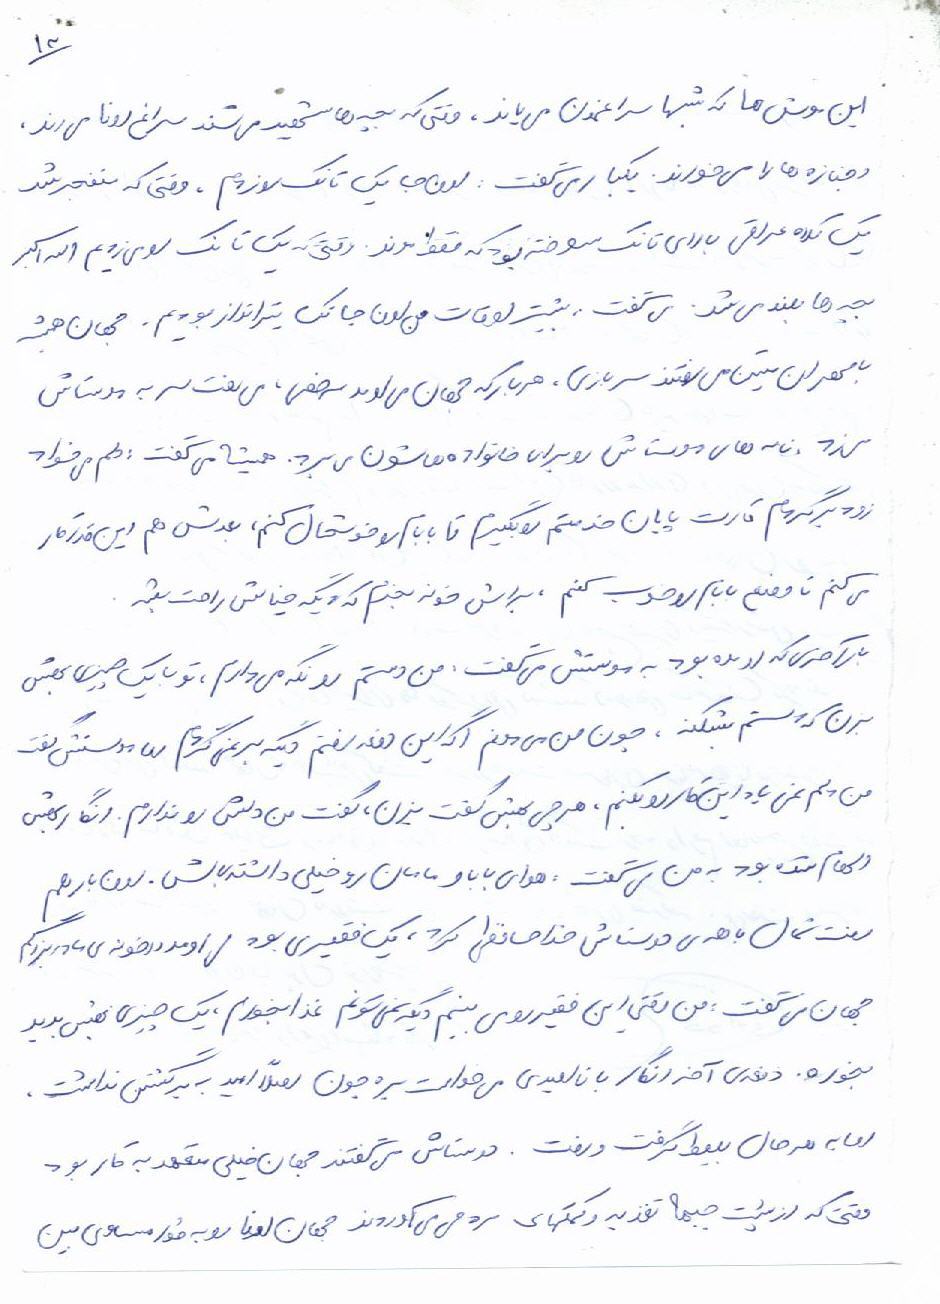 ۱۳
این موش ها که شبها سراغمون می یاند، وقتی که بچه ها شهید می شدند سراغ اونا می رند،
و جنازه ها را می خورند. یکبار می گفت: اون جا یک تانک رو زدم، وقتی که منفجر شد
یک کلاه عراقی بالای تانک سوخته بود که فقط موند. وقتی که یک تانک رو می زدیم الله اکبر
بچه ها بلند می شد. می گفت، بیشتر اوقات من اون جا تک تیرانداز بودم. جهان همیشه
با مهران متین می رفتند سربازی، هر بار که جهان می اومد مرخصی، می رفت سر به دوستاش
می زد، نامه های دوستاش رو برای خانواده هاشون می برد. همیشه می گفت: دلم می خواد
زود برگردم کارت پایان خدمتم رو بگیرم تا بابام رو خوشحال کنم، بعدش هم این قدر کار
می کنم تا وضع بابام رو خوب کنم، براش خونه بخرم که دیگه خیالش راحت بشه.
بار آخری که اومده بود به دوستش می گفت: من دستم رو نگه می دارم، تو با یک چیزی بهش
بزن که دستم بشکنه، چون من می دونم اگه این دفعه رفتم دیگه بر نمی گردم اما دوستش گفت
من دلم نمی یاد این کار رو بکنم، هر چی بهش گفت بزن، گفت من دلش رو ندارم. انگار بهش
الهام شده بود به من می گفت: هوای بابا و مامان رو خیلی داشته باش. اون بار هم
رفت شمال با همه ی دوستاش خداحافظی کرد، یک فقیری بود می اومد در خونه ی مادر بزرگم
جهان می گفت: من وقتی این فقیر رو می بینم دیگه نمی تونم غذا بخورم، یک چیزی بهش بدید
بخوره. دفعه ی آخر انگار با ناامیدی می خواست بره چون اصلاً امید به برگشتن نداشت،
اما به هر حال بلیط گرفت و رفت. دوستاش می گفتند جهان خیلی متعهد به کار بود
وقتی که از پشت جبهه تغذیه و کمکهای مردمی می آوردند جهان اونا رو به طور مساوی بین